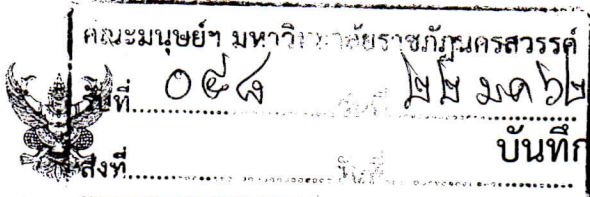 คณะมนุษย์ฯ มหาวิทยาลัยราชภัฏนครสวรรค์
รับที่ ๐๕๘ วันที่ ๒๒ มค ๖๒
บันทึก
ส่งที่ วันที่